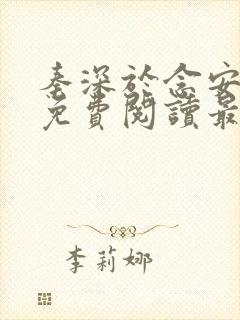 秦深於念安
免費閱讀最
李莉娜